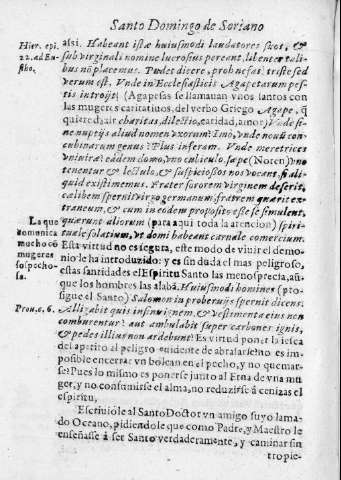 Santo Domingo de Soriano
Hier. epi.
22. ad Eu-
stho.
assi. Habeant istæ huiusmodi laudatores suos, &
sub virginali nomine lucrosius pereant, libenter tali-
bus nō placemus. Pudet dicere, proh nefas! triste sed
verum est. Vnde in Ecclesias Agapetarum pes-
tis introijt? (Agapetas se llamauan vnos santos con
las mugeres caritatiuos, del verbo Griego Agape, q̄
quiere dezir charitas, dilectio, caridad, amor) Vnde si-
ne nuptijs aliud nomen vxorum? Imò, vnde nouū con-
cubinarum genus? Plus inferam. Vnde meretrices
vniuiræ? eadem domo, vno cubiculo, sæpe (Noten) vno
tenentur & lectulo, & suspiciosos nos vocant, si ali-
quid existimemus. Frater sororem virginem deserit,
cælibem spernit virgo germanum, fratrem quærit ex-
traneum, & cum in eodem proposito esse se simulent,
quærunt aliorum (para aqui toda la atencion) spiri-
tuale solatium, vt domi habeant carnale comercium.
La que
comunica
mucho cō
mugeres
sospecho-
sa.
Esta virtud no es segura, este modo de viuir el demo-
nio le ha introduzido: y es sin duda el mas peligroso,
estas santidades el Espiritu Santo las menosprecia, assi
que los hombres las alabā. Huiusmodi homines (pro-
sigue el Santo) Salomon in prouerbijs spernit dicens:
Prou. c. 6.
Alligabit quis in sinu ignem, & vestimenta eius non
comburentur? aut ambulabit super carbones ignis,
& pedes illius non ardebunt? Es virtud poner la iesca
del apetito al peligro euidente de abrasarse? no es im-
possible encerrar vn bolcan en el pecho, y no quemar-
se? Pues lo mismo es ponerse junto al Etna de vna mu
ger, y no consumirse el alma, no reduzirse à cenizas el
espiritu.
Escriuióle al Santo Doctor vn amigo suyo llama-
do Oceano, pidiendole que como Padre, y Maestro le
enseñasse à ser Santo verdaderamente, y caminar sin
tropie-